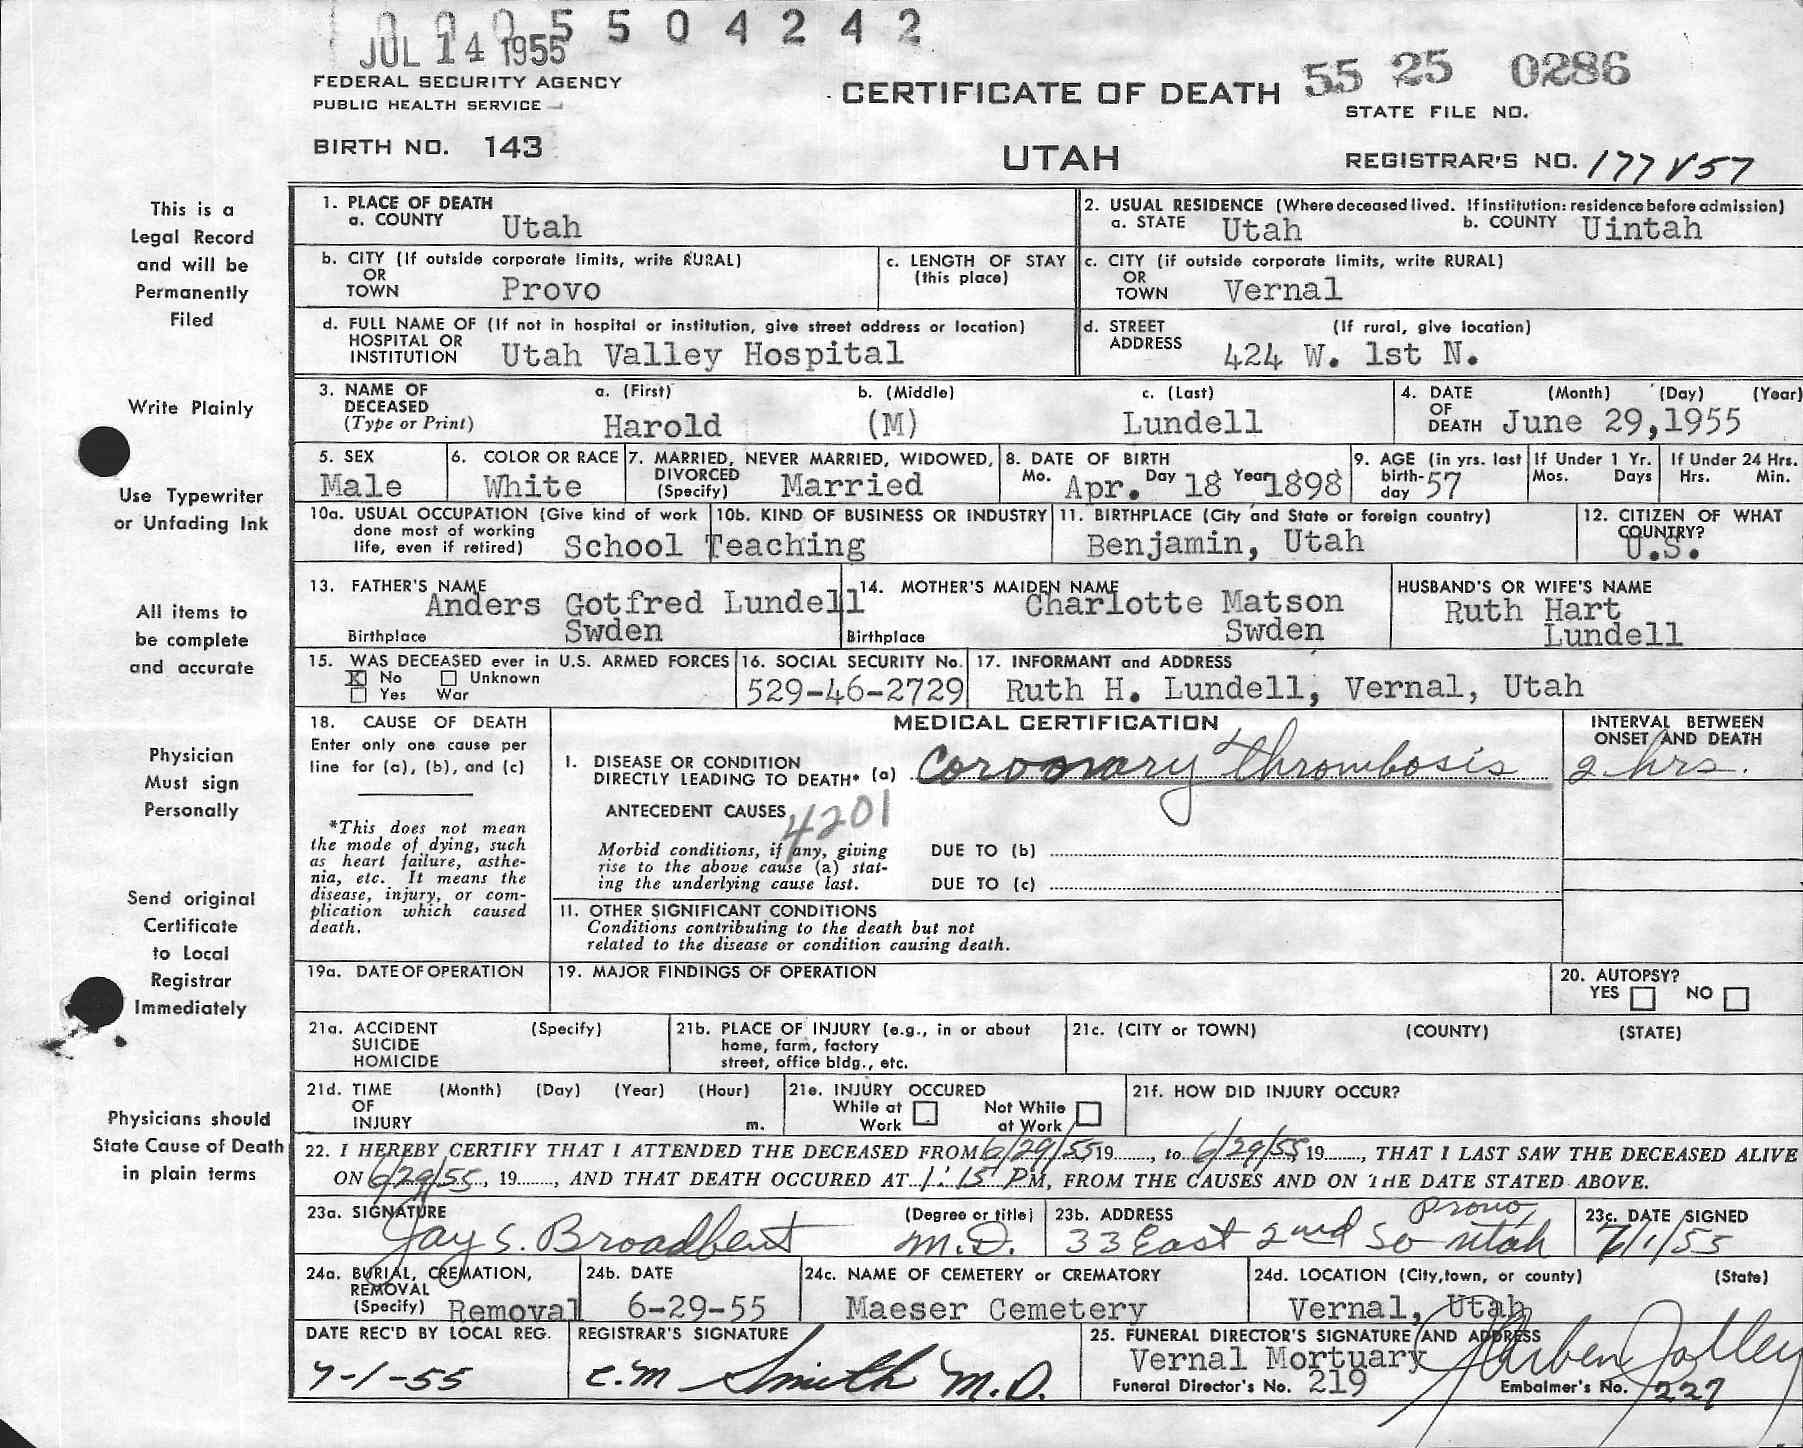 0 0 0 5 5 0 4 2 4 2
JUL 14 1955
FEDERAL SECURITY AGENCY
PUBLIC HEALTH SERVICE
CERTIFICATE OF DEATH 55 25 0286
STATE FILE NO.
BIRTH NO. 143
UTAH
REGISTRAR'S NO. 177 V57
This is a
Legal Record
and will be
Permanently
Filed
Write Plainly
Use Typewriter
or Unfading Ink
All items to
be complete
and accurate
Physician
Must sign
Personally
Send original
Certificate
to Local
Registrar
Immediately
Physicians should
State Cause of Death
in plain terms
1. PLACE OF DEATH
a. COUNTY Utah
2. USUAL RESIDENCE (Where deceased lived. If institution: residence before admission)
a. STATE Utah b. COUNTY Uintah
b. CITY (If outside corporate limits, write RURAL)
OR
TOWN Provo
c. LENGTH OF STAY
(this place)
c. CITY (if outside corporate limits, write RURAL)
OR
TOWN Vernal
d. FULL NAME OF (If not in hospital or institution, give street address or location)
HOSPITAL OR
INSTITUTION Utah Valley Hospital
d. STREET (If rural, give location)
ADDRESS 424 W. 1st N.
3. NAME OF a. (First) b. (Middle) c. (Last)
DECEASED
(Type or Print) Harold (M) Lundell
4. DATE (Month) (Day) (Year)
OF
DEATH June 29, 1955
5. SEX
Male
6. COLOR OR RACE
White
7. MARRIED, NEVER MARRIED, WIDOWED,
DIVORCED
(Specify) Married
8. DATE OF BIRTH
Mo. Apr. Day 18 Year 1898
9. AGE (in yrs. last
birth-
day 57
If Under 1 Yr.
Mos. Days
If Under 24 Hrs.
Hrs. Min.
10a. USUAL OCCUPATION (Give kind of work
done most of working
life, even if retired) School Teaching
10b. KIND OF BUSINESS OR INDUSTRY
11. BIRTHPLACE (City and State or foreign country)
Benjamin, Utah
12. CITIZEN OF WHAT
COUNTRY?
U.S.
13. FATHER'S NAME
Anders Gotfred Lundell
Birthplace Swden
14. MOTHER'S MAIDEN NAME
Charlotte Matson
Birthplace Swden
HUSBAND'S OR WIFE'S NAME
Ruth Hart
Lundell
15. WAS DECEASED ever in U.S. ARMED FORCES
X No Unknown
Yes War
16. SOCIAL SECURITY No.
529-46-2729
17. INFORMANT and ADDRESS
Ruth H. Lundell, Vernal, Utah
18. CAUSE OF DEATH
Enter only one cause per
line for (a), (b), and (c)
*This does not mean
the mode of dying, such
as heart failure, asthe-
nia, etc. It means the
disease, injury, or com-
plication which caused
death.
MEDICAL CERTIFICATION
I. DISEASE OR CONDITION
DIRECTLY LEADING TO DEATH* (a) Coronary thrombosis
ANTECEDENT CAUSES
4201
Morbid conditions, if any, giving
rise to the above cause (a) stat-
ing the underlying cause last.
DUE TO (b)
DUE TO (c)
INTERVAL BETWEEN
ONSET AND DEATH
2 hrs.
II. OTHER SIGNIFICANT CONDITIONS
Conditions contributing to the death but not
related to the disease or condition causing death.
19a. DATE OF OPERATION
19. MAJOR FINDINGS OF OPERATION
20. AUTOPSY?
YES NO
21a. ACCIDENT (Specify)
SUICIDE
HOMICIDE
21b. PLACE OF INJURY (e.g., in or about
home, farm, factory
street, office bldg., etc.
21c. (CITY or TOWN) (COUNTY) (STATE)
21d. TIME (Month) (Day) (Year) (Hour)
OF
INJURY m.
21e. INJURY OCCURED
While at Work Not While at Work
21f. HOW DID INJURY OCCUR?
22. I HEREBY CERTIFY THAT I ATTENDED THE DECEASED FROM 6/29/55 19......, to 6/29/55 19......, THAT I LAST SAW THE DECEASED ALIVE
ON 6/29/55, 19......, AND THAT DEATH OCCURED AT 1:15 PM, FROM THE CAUSES AND ON THE DATE STATED ABOVE.
23a. SIGNATURE (Degree or title)
Jay S. Broadbent M.D.
23b. ADDRESS
33 East 2nd So Provo, Utah
23c. DATE SIGNED
7/1/55
24a. BURIAL, CREMATION,
REMOVAL
(Specify) Removal
24b. DATE
6-29-55
24c. NAME OF CEMETERY or CREMATORY
Maeser Cemetery
24d. LOCATION (City, town, or county) (State)
Vernal, Utah
DATE REC'D BY LOCAL REG.
7-1-55
REGISTRAR'S SIGNATURE
C.M Smith M.D.
25. FUNERAL DIRECTOR'S SIGNATURE AND ADDRESS
Vernal Mortuary
Funeral Director's No. 219
Embalmer's No. 227